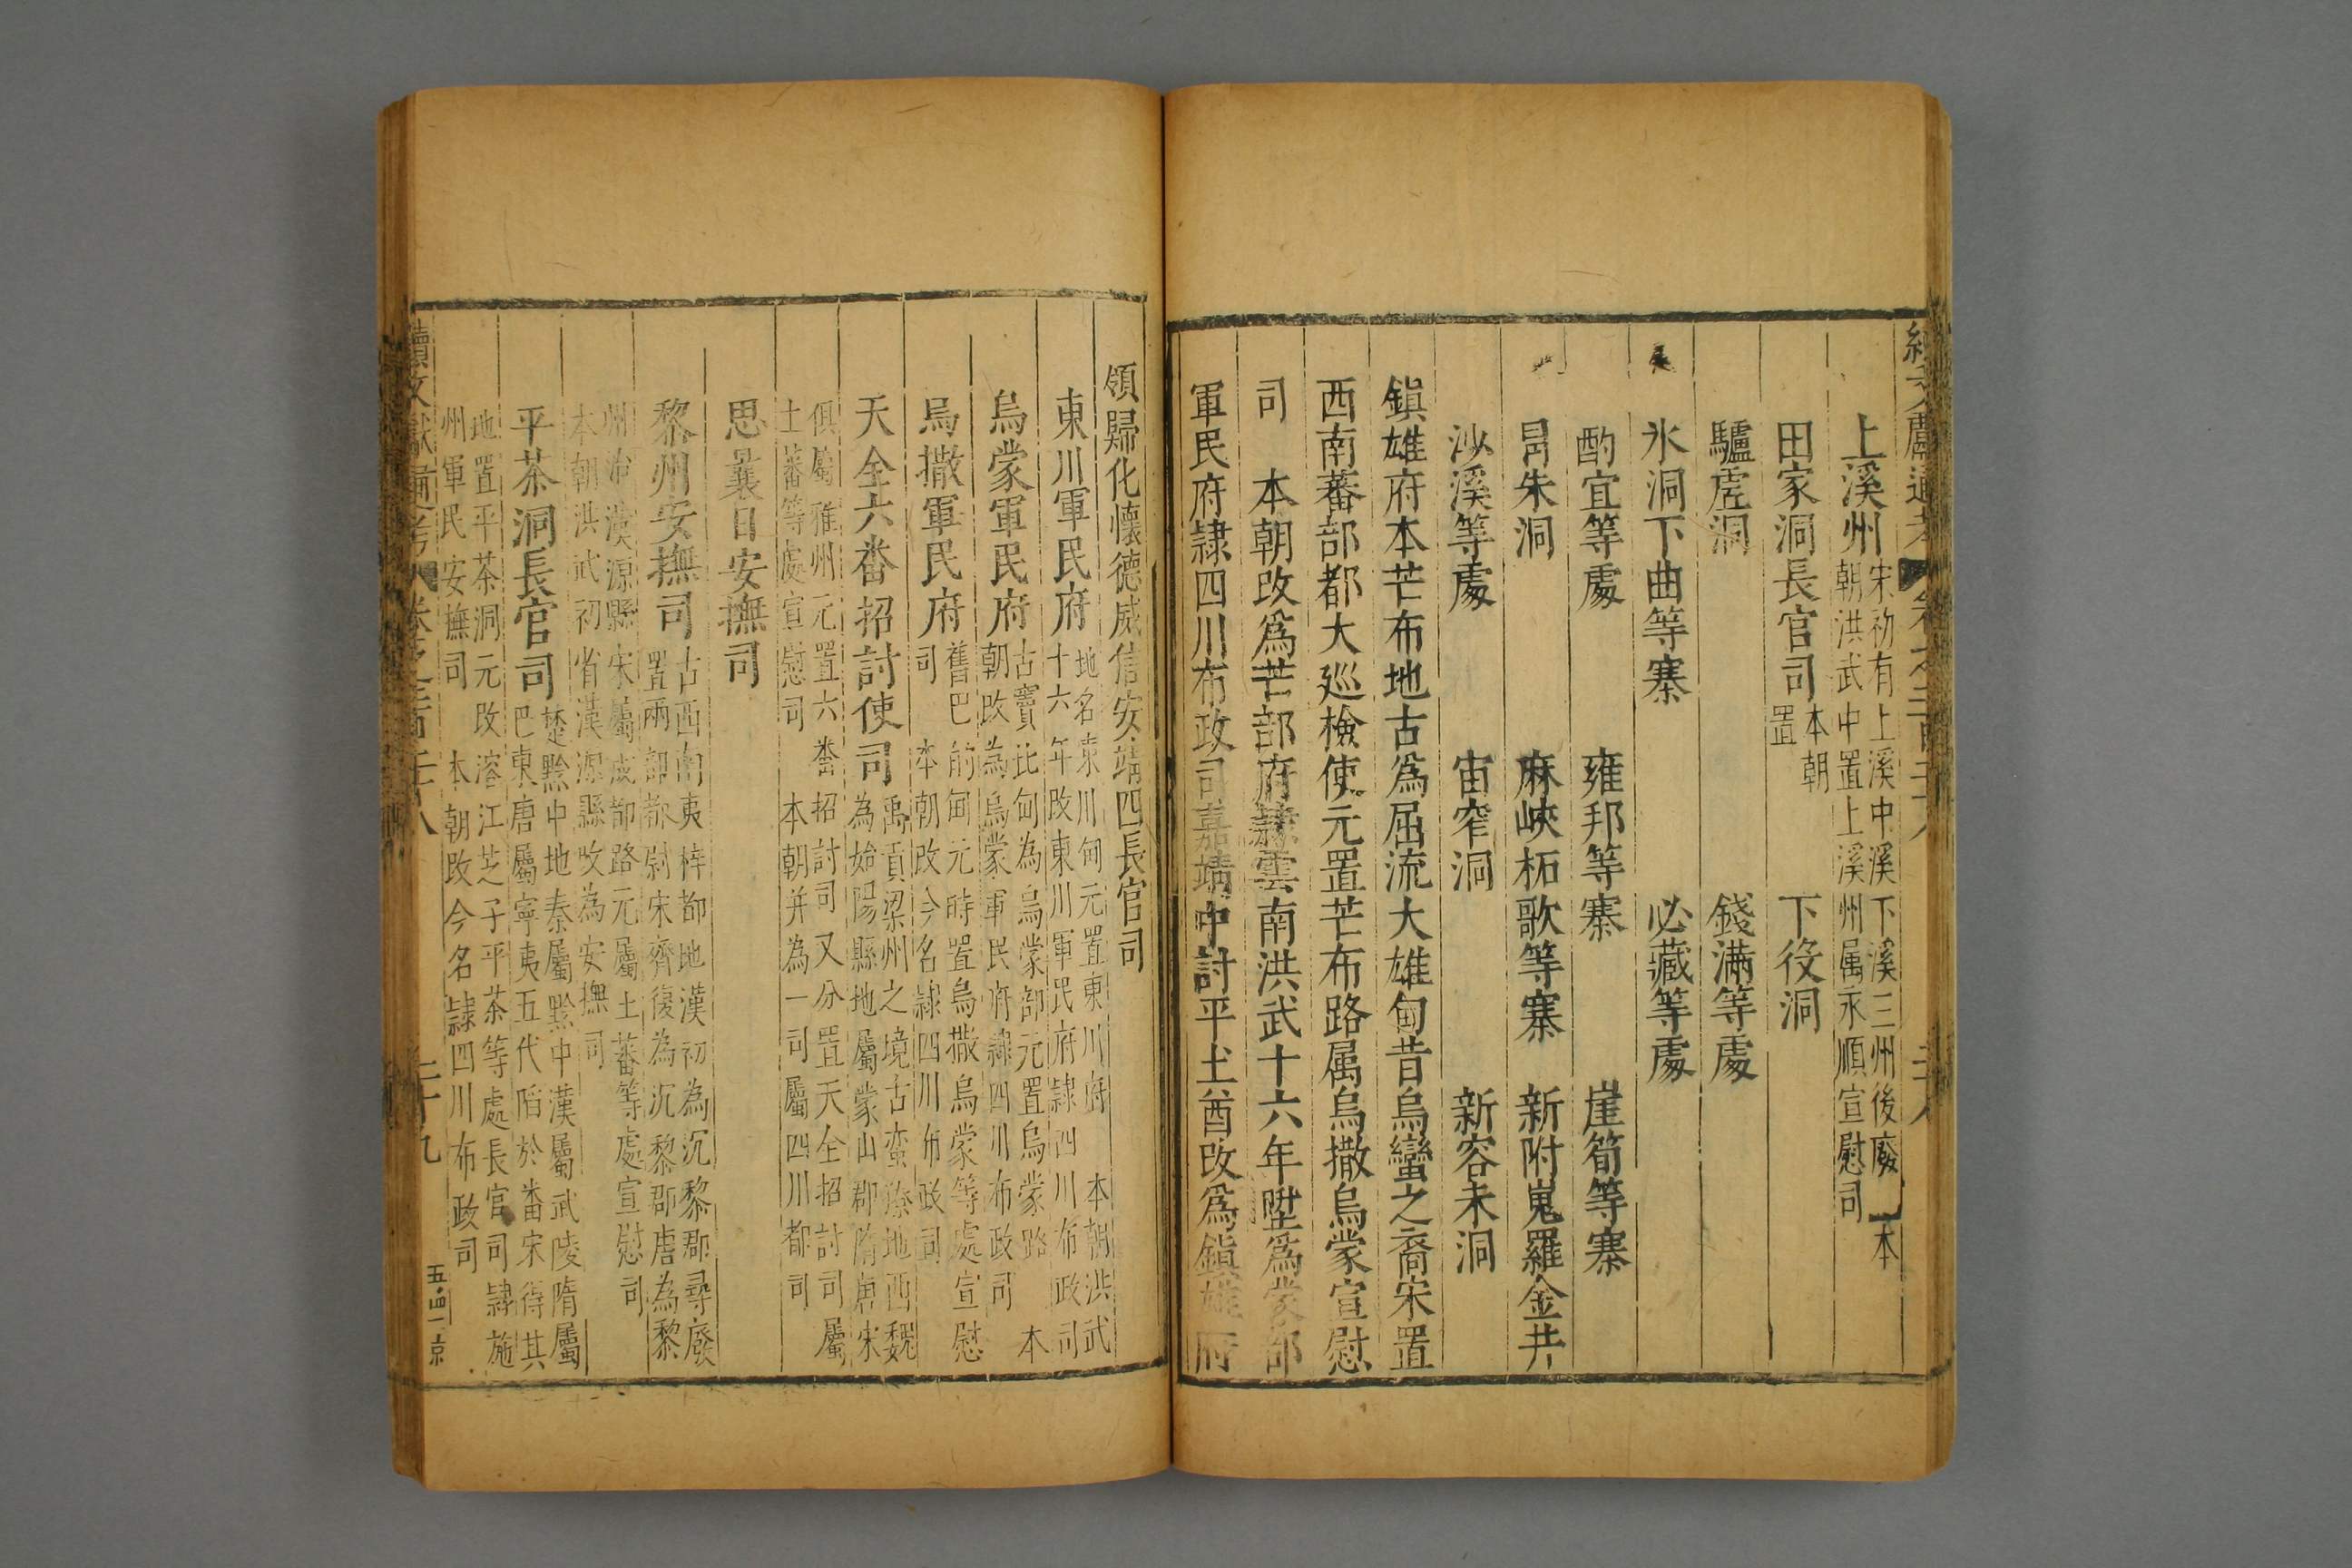 上溪州 宋初有上溪中溪下溪三州後廢 本
朝洪武中置上溪州属永順宣慰司
田家洞長官司 本朝
置 下役洞
驢虗洞 錢滿等處
氷洞下曲等寨 必藏等處
酌宜等處 雍邦等寨 崖筍等寨
咼朱洞 麻峽柘歌等寨 新附嵬羅金井
沙溪等處 宙窄洞 新容米洞
鎮雄府本芒布地古爲屈流大雄甸昔烏蠻之裔宋置
西南蕃部都大廵檢使元置芒布路属烏撒烏蒙宣慰
司 本朝改爲芒部府隷雲南洪武十六年陞爲蒙部
軍民府隷四川布政司嘉靖中討平土酋改爲鎮雄府
領歸化懷德威信安靖四長官司
東川軍民府 地名東川甸元置東川府 本朝洪武
十六年改東川軍民府隷四川布政司
烏蒙軍民府 古竇比甸為烏蒙部元置烏蒙路 本
朝改為烏蒙軍民府隷四川布政司
烏撒軍民府 舊巴的甸元時置烏撒烏蒙等處宣慰
司 本朝改今名隷四川布政司
天全六畨招討使司 禹貢梁州之境古蛮獠地西魏
為始陽縣地屬蒙山郡隋唐宋
俱屬雅州元置六畨招討司又分置天全招討司屬
土蕃等處宣慰司 本朝并為一司屬四川都司
思曩日安撫司
黎州安撫司 古西南夷莋都地漢初為沉黎郡尋廢
置兩部都尉宋齊復為沉黎郡唐為黎
州治漢源縣宋屬成都路元屬土蕃等處宣慰司
本朝洪武初省漢源縣改為安撫司
平茶洞長官司 楚黔中地秦屬黔中漢屬武陵隋屬
巴東唐屬寧夷五代陷於畨宋得其
地置平茶洞元改溶江芝子平茶等處長官司隷施
州軍民安撫司 本朝改今名隷四川布政司
續文獻通考 卷之三百三十八 二十九
五四一京